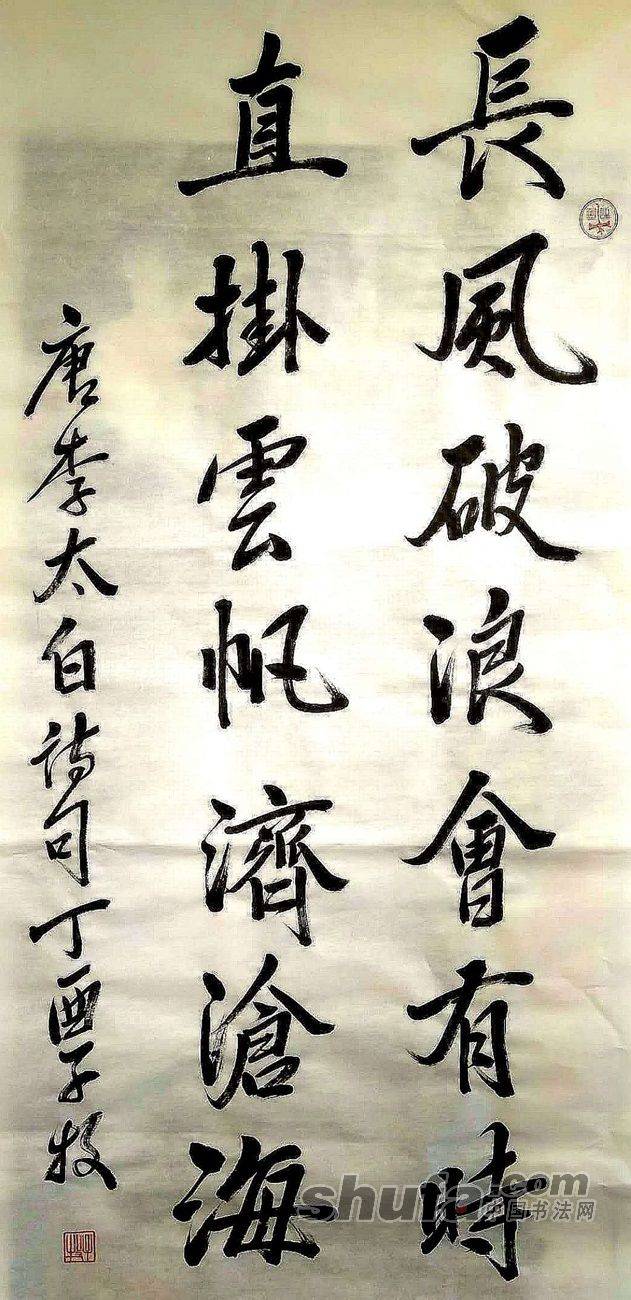 長風破浪會有時
直掛雲帆濟滄海
唐李太白詩句丁酉子牧
shufa.com
中国书法网